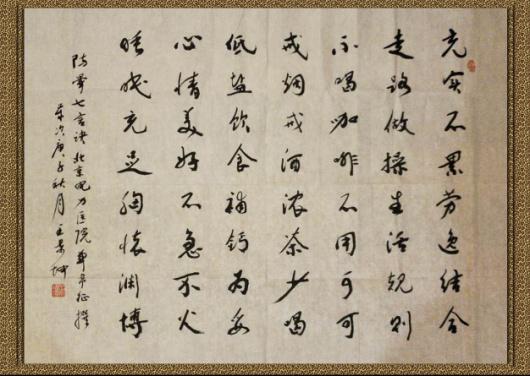 充实不累劳逸结合
走路做操生活规则
不喝咖啡不用可可
戒烟戒酒浓茶少喝
低盐饮食补钙为妥
心情美好不急不火
睡眠充足胸怀渊博
七言诀北京电力医院
岁次庚子秋月王景